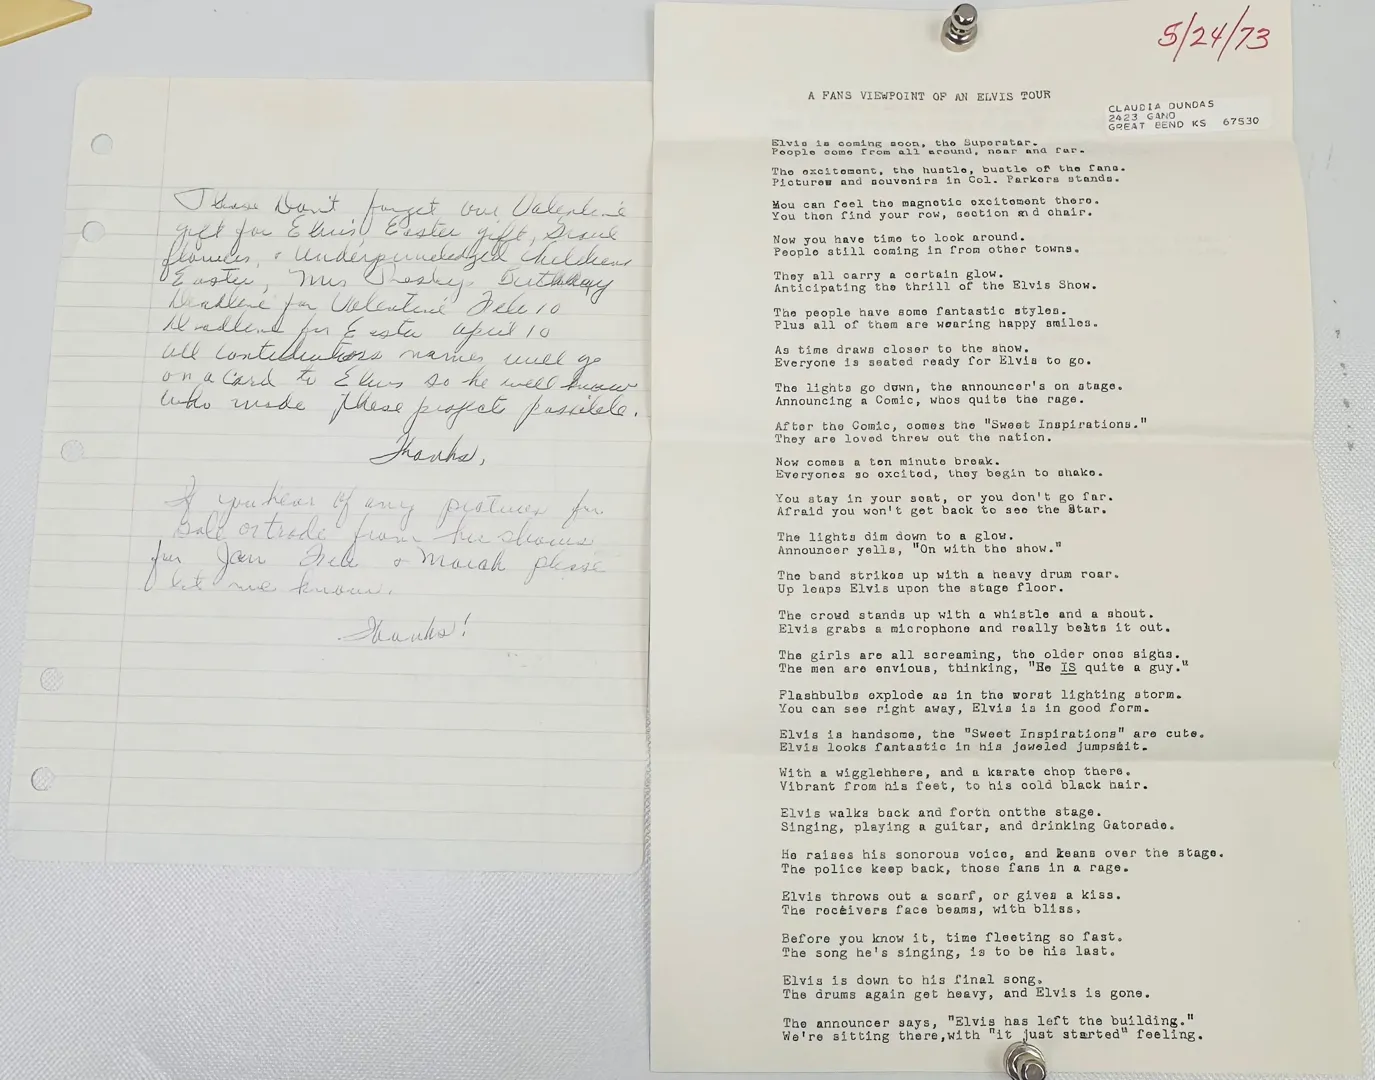 Please Don't forget our Valentine
gift for Elvis, Easter gift, Grave
flowers, & Underpriviledged Childrens
Easter, Mrs Presley's Birthday
Deadline for Valentine Feb 10
Deadline for Easter April 10
all contributors names will go
on a Card to Elvis so he will know
who made these projects possible.
Thanks,
If you hear of any pictures for
Sale or trade from his shows
for Jan Feb & March please
let me know.
Thanks!
5/24/73
A FANS VIEWPOINT OF AN ELVIS TOUR
CLAUDIA DUNDAS
2423 GANO
GREAT BEND KS 67530
Elvis is coming soon, the Superstar.
People come from all around, near and far.
The excitement, the hustle, bustle of the fans.
Pictures and souvenirs in Col. Parkers stands.
You can feel the magnetic excitement there.
You then find your row, section and chair.
Now you have time to look around.
People still coming in from other towns.
They all carry a certain glow.
Anticipating the thrill of the Elvis Show.
The people have some fantastic styles.
Plus all of them are wearing happy smiles.
As time draws closer to the show.
Everyone is seated ready for Elvis to go.
The lights go down, the announcer's on stage.
Announcing a Comic, whos quite the rage.
After the Comic, comes the "Sweet Inspirations."
They are loved threw out the nation.
Now comes a ten minute break.
Everyones so excited, they begin to shake.
You stay in your seat, or you don't go far.
Afraid you won't get back to see the Star.
The lights dim down to a glow.
Announcer yells, "On with the show."
The band strikes up with a heavy drum roar.
Up leaps Elvis upon the stage floor.
The crowd stands up with a whistle and a shout.
Elvis grabs a microphone and really belts it out.
The girls are all screaming, the older ones sighs.
The men are envious, thinking, "He IS quite a guy."
Flashbulbs explode as in the worst lighting storm.
You can see right away, Elvis is in good form.
Elvis is handsome, the "Sweet Inspirations" are cute.
Elvis looks fantastic in his jeweled jumpsuit.
With a wigglehhere, and a karate chop there.
Vibrant from his feet, to his cold black hair.
Elvis walks back and forth ontthe stage.
Singing, playing a guitar, and drinking Gatorade.
He raises his sonorous voice, and leans over the stage.
The police keep back, those fans in a rage.
Elvis throws out a scarf, or gives a kiss.
The receivers face beams, with bliss.
Before you know it, time fleeting so fast.
The song he's singing, is to be his last.
Elvis is down to his final song.
The drums again get heavy, and Elvis is gone.
The announcer says, "Elvis has left the building."
We're sitting there,with "it just started" feeling.